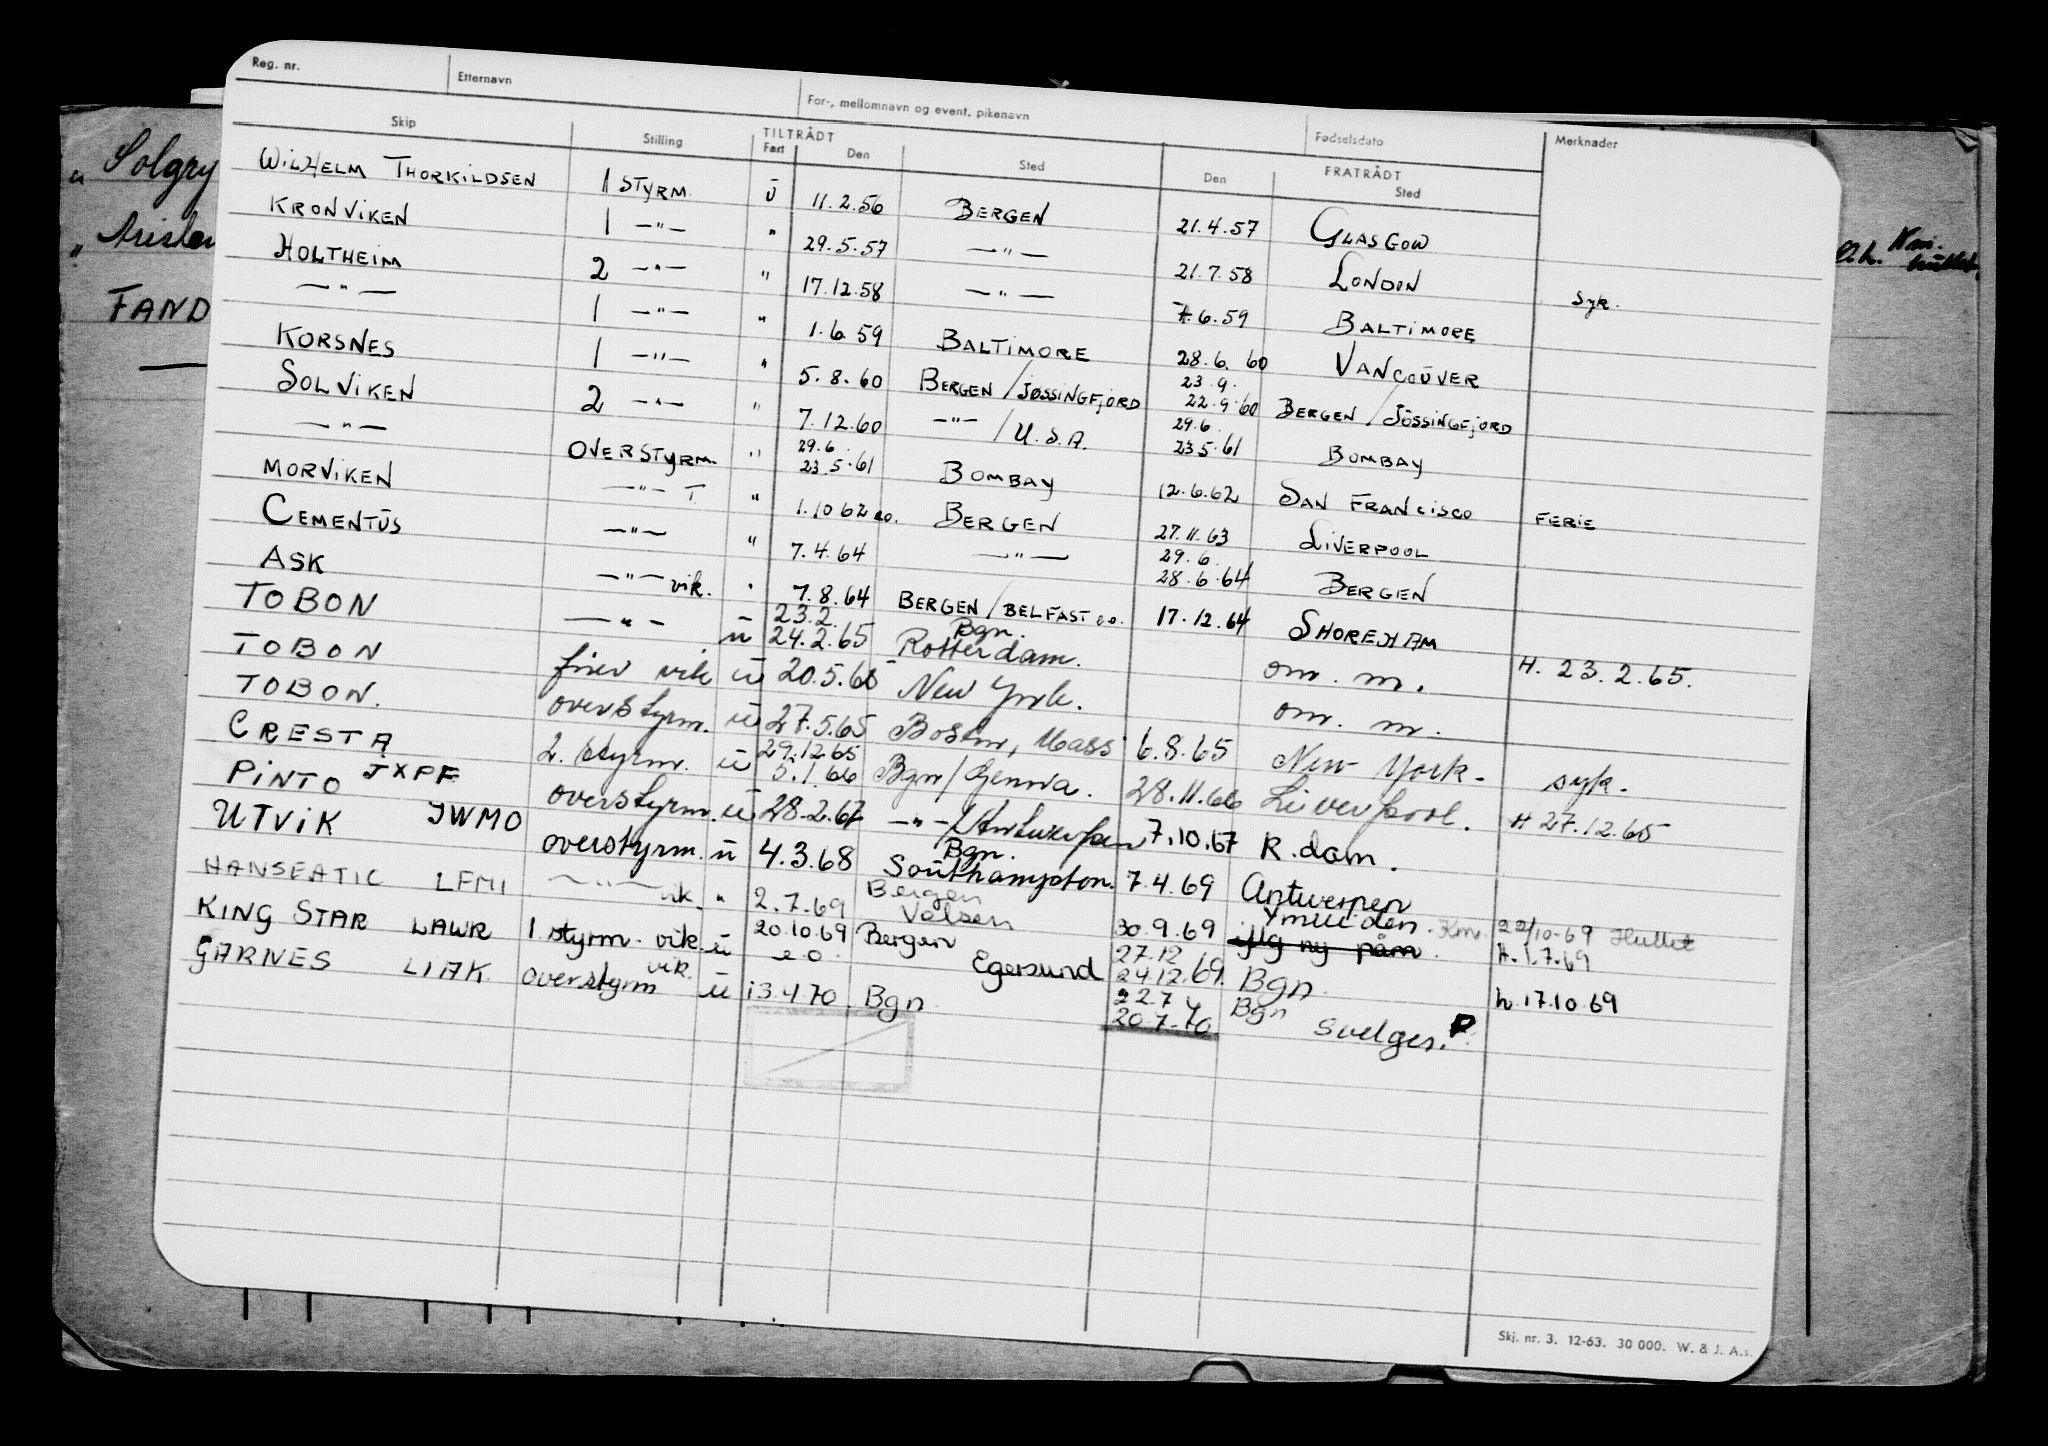 Reg. nr. Etternavn For-, mellomnavn og event. pikenavn Fødselsdato Merknader
Skip Stilling TILTRÅDT Fart Den Sted FRATRÅDT Den Sted
"Solgry
"
FAND
WILHELM THORKILDSEN 1 STYRM. Ū 11.2.56 BERGEN 21.4.57 GLASGOW
KRONVIKEN 1 —"— " 29.5.57 —"— 21.7.58 LONDON syk.
HOLTHEIM 2 —"— " 17.12.58 —"— 7.6.59 BALTIMORE
—"— 1 —"— " 1.6.59 BALTIMORE 28.6.60 VANCOUVER
KORSNES 1 —"— " 5.8.60 BERGEN / JØSSINGFJORD 23.9. 22.9.60 BERGEN / JÖSSINGFJORD
SOLVIKEN 2 —"— " 7.12.60 —"— / U.S.A. 29.6. 23.5.61 BOMBAY
—"— OVERSTYRM. " 29.6. 23.5.61 BOMBAY 12.6.62 SAN FRANCISCO FERIE
MORVIKEN —"— T. " 1.10 62 eo. BERGEN 27.11.63 LIVERPOOL
CEMENTŪS —"— " 7.4.64 —"— 29.6. 28.6.64 BERGEN
ASK —"— vik. " 7.8.64 BERGEN / BELFAST e.o. 17.12.64 SHOREHAM
TOBON —"— — 23.2. Bgn.
ū 24.2.65 Rotterdam. om. m. H. 23.2.65.
TOBON vik ū 20.5.65 New York. om. m.
TOBON. overstyrm. ū 27.5.65 Boston, Mass 6.8.65 New York. syk.
CRESTA 2. styrm. ū 29.12.65 5.1.66 Bgn/Genova. 28.11.66 Liverpool. H 27.12.65
PINTO JXPF overstyrm. ū 28.2.67 —"—/Antwerpen 7.10.67 R.dam.
UTVIK JWMO overstyrm. ū 4.3.68 Bgn. Southampton. 7.4.69 Antwerpen
HANSEATIC LFMI —"— vik. " 2.7.69 Bergen Velsen 30.9.69 Ymuiden. Km. 22/10-69 Hullet
KING STAR LAWR 1. styrm. vik. ū 20.10.69 Bergen 27.12 jlg ny påm. H. 1.7.69
e o. Egersund 24.12.69. Bgn.
GARNES LIAK overstyrm vik. ū 13.4.70. Bgn 22.7 Bgn h. 17.10.69
20.7.70. Svelgen. P.
Skj. nr. 3. 12-63. 30 000. W. & J. A.s.